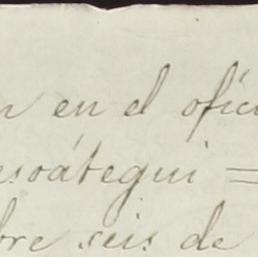 en el ofici
esoátegui =
bre seis de